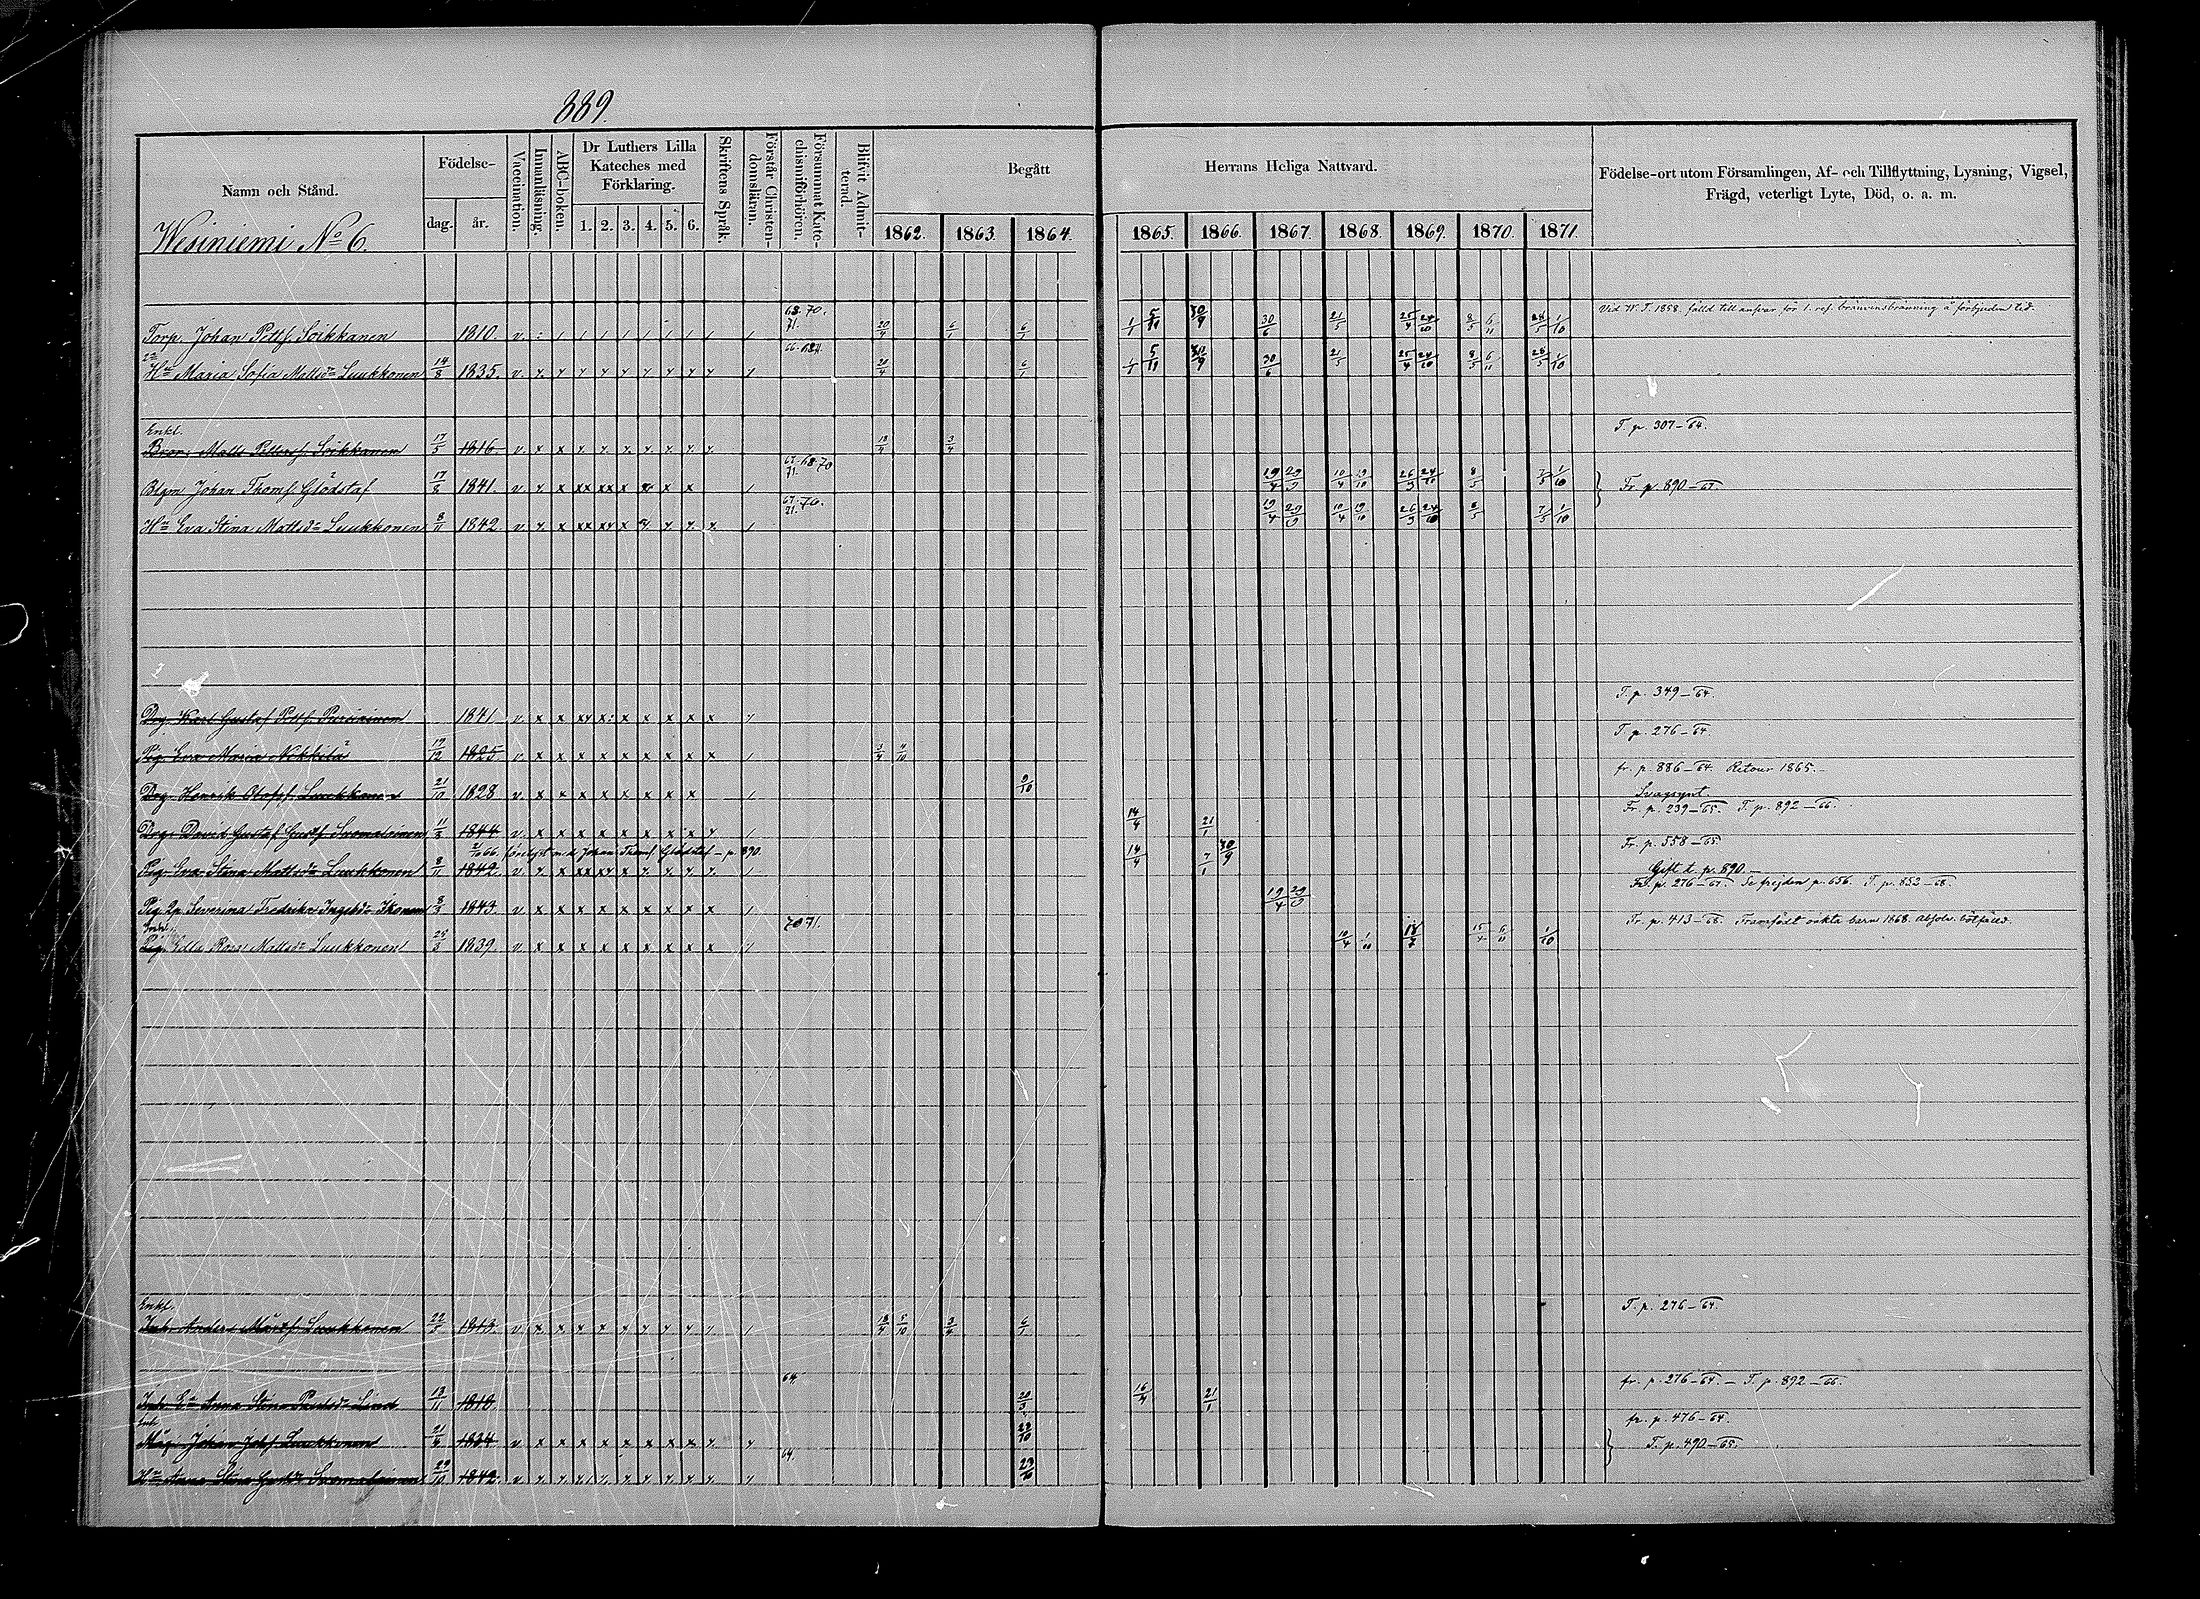 889.
Namn och Stånd. Födelse- dag. år. Vaccination. Innanläsning. ABC-boken. Dr Luthers Lilla Kateches med Förklaring. 1. 2. 3. 4. 5. 6. Skriftens Språk. Förstår Christendomsläran. Försummat Katechismiförhören. Blifvit Admitterad. Begått Herrans Heliga Nattvard. Födelse-ort utom Församlingen, Af- och Tillflyttning, Lysning, Vigsel, Frägd, veterligt Lyte, Död, o. a. m.
1862. 1863. 1864. 1865. 1866. 1867. 1868. 1869. 1870. 1871.
Wesiniemi No 6.
Torp. Johan Pettf. Soikkanen 1810. v. 68. 70. 71. 20/4 6/1 6/1 1/1 5/11 30/9 30/6 21/5 25/4 24/10 8/5 6/11 28/5 1/10 Vid W. T. 1858. fälld till ansvar för 1. res. bränvinsbränning å förbjuden tid.
2a
Hu Maria Sofia Mattsdr Luukkonen 14/8 1835. v. 20/4 6/1 1/1 5/11 30/9 30/6 21/5 25/4 24/10 8/5 6/11 28/5 1/10
Enkl.
Bror: Matts Pettersf. Soikkanen 17/5 1816 v. x x 18/4 3/4 T. p. 307-64.
Blgm Johan Thomsf. Glödstaf 17/8 1841. v. 67. 68. 70 71. 19/4 29/9 10/4 19/10 26/3 24/10 8/5 7/5 1/10 Fr p. 890-67.
Hu Eva Stina Mattsdr Luukkonen 8/11 1842. v. 67. 70. 71. 19/4 29/9 10/4 19/10 26/3 24/10 8/5 7/5 1/10
Drg. Karl Gustaf Pettf. Pursiainen 1841 v. x x T. p. 349-64.
Pig. Eva Maria Nikkilä 19/12 1825 v. x x 3/4 4/10 T. p. 276-64.
Drg. Henrik Olofsf. Luukkonen 21/10 1828 v. x x 9/10 fr. p. 886-64. Retour 1865.
Svagsynt.
Drg: David Gustaf Gustf. Suomalainen 11/3 1844 v. x x 14/4 21/1 Fr. p. 239-65. T. p. 892-66.
2/10 66. förelyst med Johan Thomsf Glödstaf - p. 890.
Pig. Eva Stina Mattsdr Luukkonen 8/11 1842. v. 14/4 7/1 30/9 Fr. p. 558-65.
Gift t. p. 890.-
Pig. Severina Fredrika Ingelsdr Ikonen 8/3 1843. v. x x 19/4 29/9 Fr. p. 276-67. Se frejden p. 656. T. p. 852-68.
Pig. Edla Rosa Mattsdr Luukkonen 25/3 1839. v. x x 70 71. 10/4 1/10 18/4 15/4 6/11 1/10 Fr. p. 413-68. Framfödt oäkta barn 1868. Absolv. bötfälld.
Enkl.
Inh. Anders Mårtsf. Luukkonen 22/5 1813. v. 18/4 5/10 3/4 6/1 T. p. 276-64.
Inh. Ea Anna Stina Paulsdr Lind 13/11 1818 64. 20/3 16/4 21/1 fr. p. 276-64. - T. p. 892-66.
Inh.
Måg: Johan Johsf Luukkonen 21/6 1834 v. x x 29/10 fr. p. 476-64.
T. p. 490-65.
Hu Anna Stina Gustdr Suomalainen 29/10 1842. v. 64. 29/10